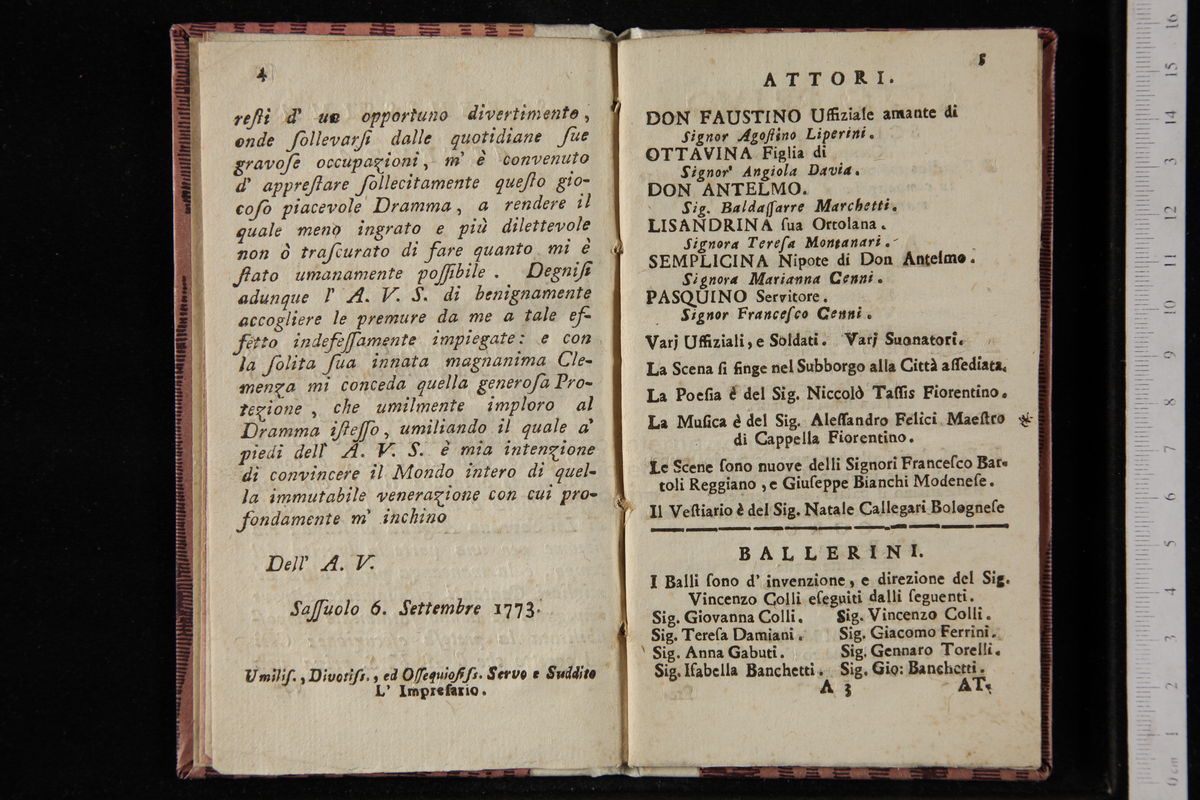 4
reſti d' un opportuno divertimento,
onde ſollevarſi dalle quotidiane ſue
gravoſe occupazioni, m' è convenuto
d' appreſtare ſollecitamente queſto gio-
coſo piacevole Dramma, a rendere il
quale meno ingrato e più dilettevole
non ò traſcurato di fare quanto mi è
ſtato umanamente poſſibile. Degniſi
adunque l' A. V. S. di benignamente
accogliere le premure da me a tale ef-
fetto indefeſſamente impiegate: e con
la ſolita ſua innata magnanima Cle-
menza mi conceda quella generoſa Pro-
tezione, che umilmente imploro al
Dramma iſteſſo, umiliando il quale a'
piedi dell' A. V. S. è mia intenzione
di convincere il Mondo intero di quel-
la immutabile venerazione con cui pro-
fondamente m' inchino
Dell' A. V.
Saſſuolo 6. Settembre 1773.
Umiliſ., Divotiſſ., ed Oſſequioſiſſ. Servo e Suddito
L' Impreſario.
5
ATTORI.
DON FAUSTINO Uffiziale amante di
Signor Agoſtino Liperini.
OTTAVINA Figlia di
Signor' Angiola Davia.
DON ANTELMO.
Sig. Baldaſſarre Marchetti.
LISANDRINA ſua Ortolana.
Signora Tereſa Montanari.
SEMPLICINA Nipote di Don Antelmo.
Signora Marianna Cenni.
PASQUINO Servitore.
Signor Franceſco Cenni.
Varj Uffiziali, e Soldati. Varj Suonatori.
La Scena ſi finge nel Subborgo alla Città aſſediata.
La Poeſia è del Sig. Niccolò Taſſis Fiorentino.
La Muſica è del Sig. Aleſſandro Felici Maeſtro
di Cappella Fiorentino.
Le Scene ſono nuove delli Signori Franceſco Bar-
toli Reggiano, e Giuſeppe Bianchi Modeneſe.
Il Veſtiario è del Sig. Natale Callegari Bologneſe
BALLERINI.
I Balli ſono d' invenzione, e direzione del Sig.
Vincenzo Colli eſeguiti dalli ſeguenti.
Sig. Giovanna Colli. Sig. Vincenzo Colli.
Sig. Tereſa Damiani. Sig. Giacomo Ferrini.
Sig. Anna Gabuti. Sig. Gennaro Torelli.
Sig. Iſabella Banchetti. Sig. Gio: Banchetti.
A 3 AT-
0 cm 1 2 3 4 5 6 7 8 9 10 11 12 13 14 15 16